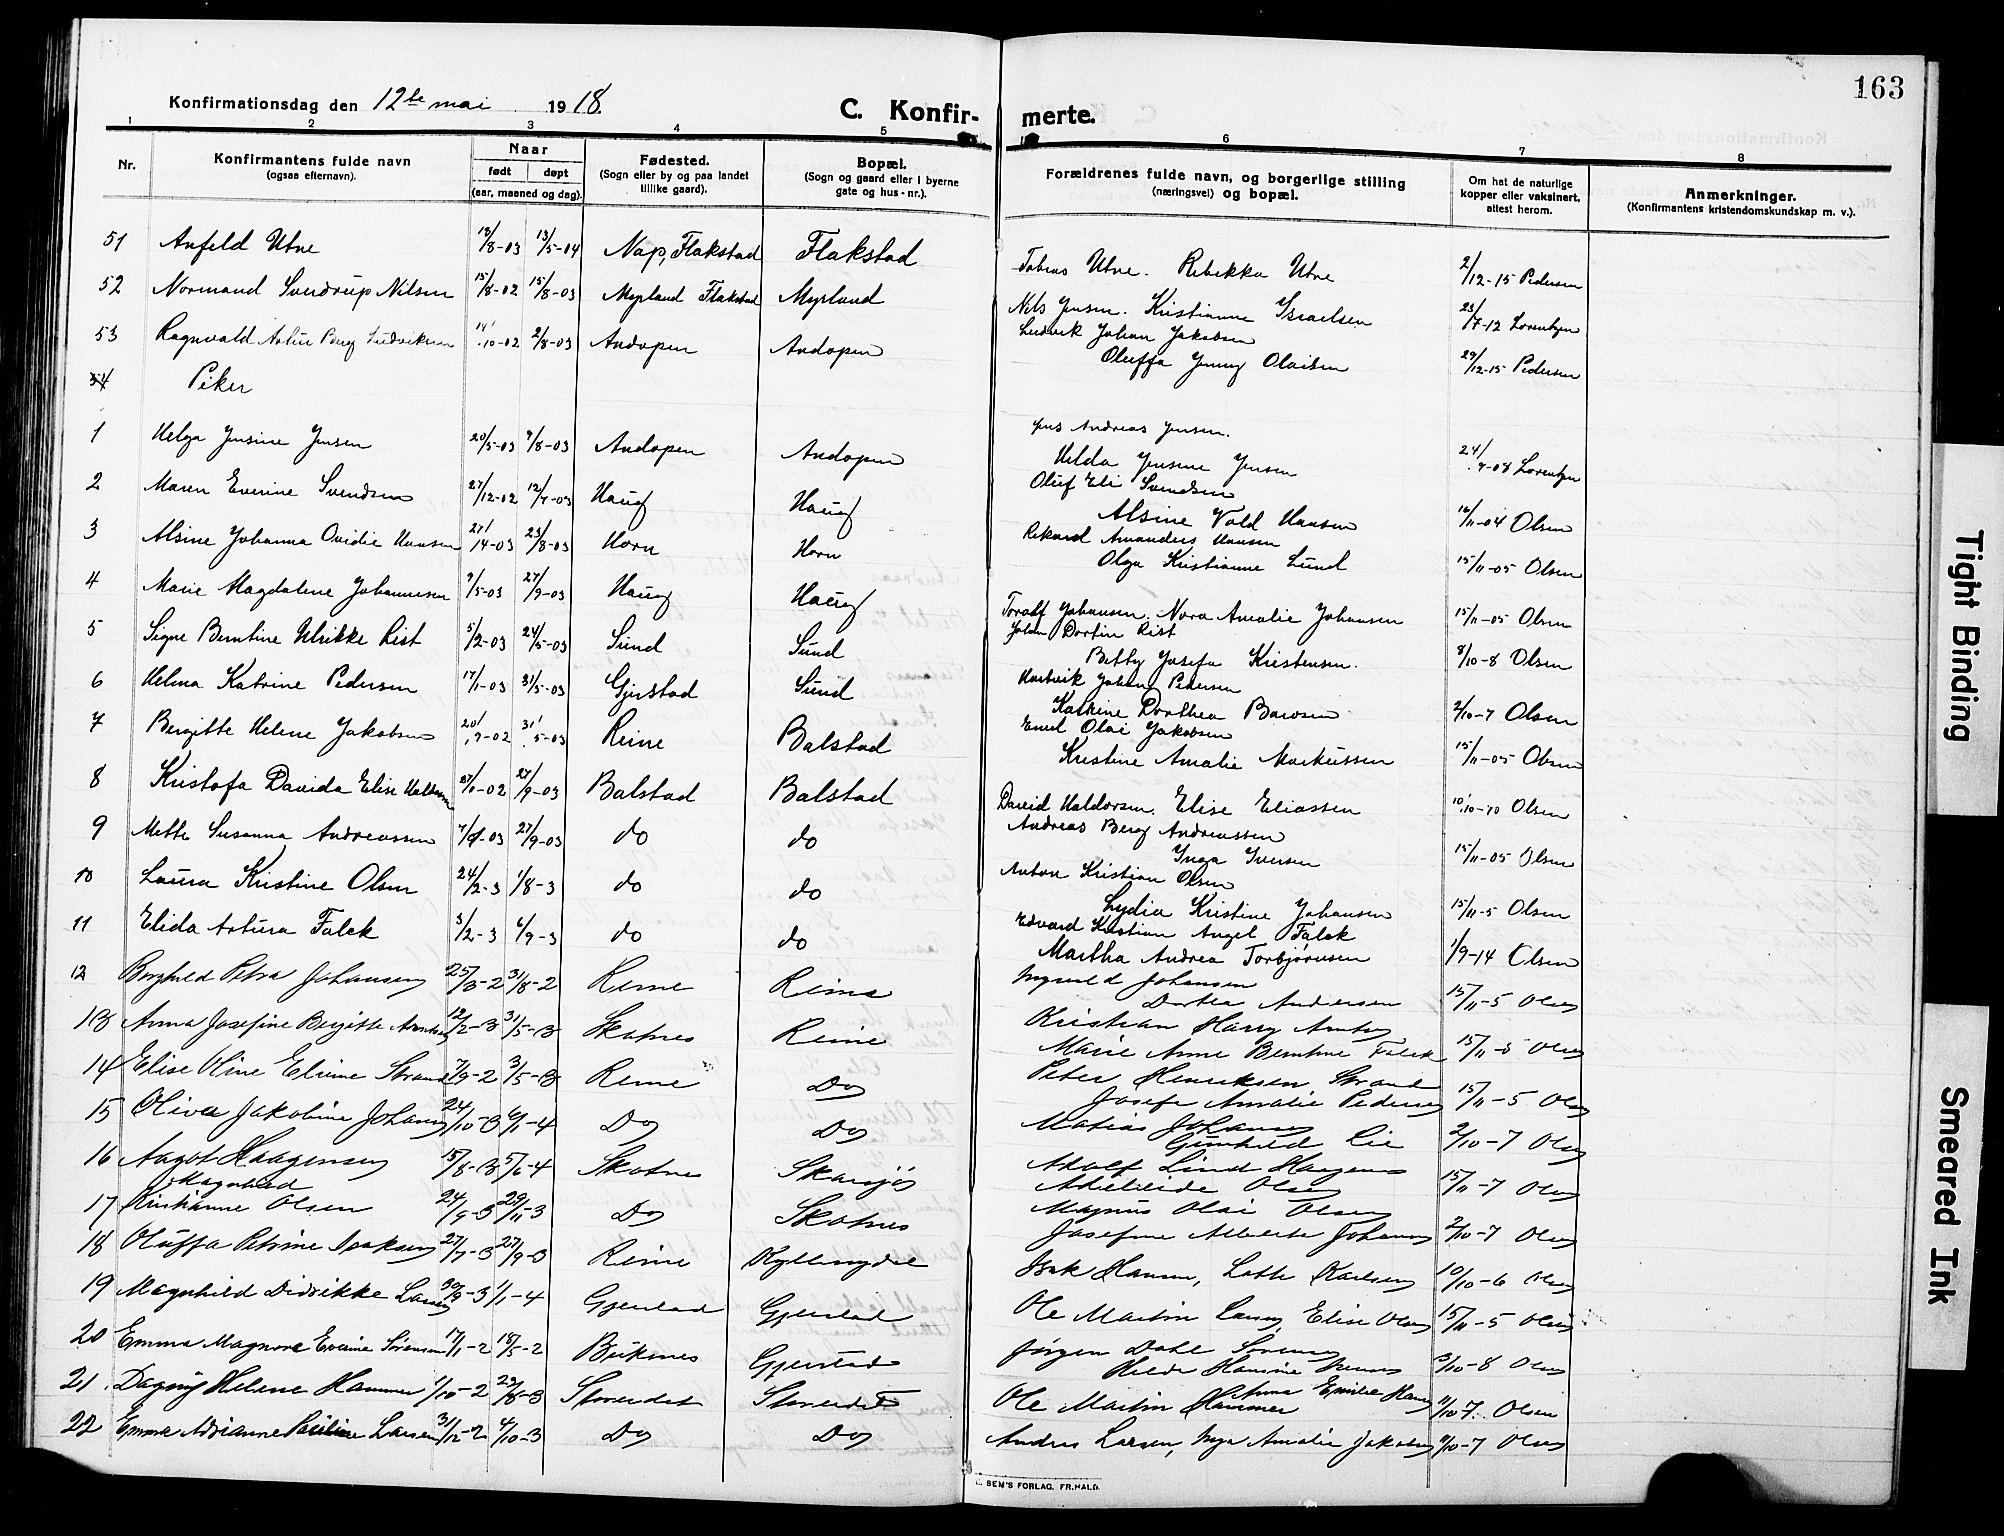 163
Konfirmationsdag den 12te mai 1918.
C. Konfirmerte.
1 2 3 4 5 6 7 8
Nr.
Konfirmantens fulde navn
(ogsaa efternavn).
Naar
født døpt
(aar, maaned og dag).
Fødested.
(Sogn eller by og paa landet
tillike gaard).
Bopæl.
(Sogn og gaard eller i byerne
gate og hus-nr.).
Forældrenes fulde navn, og borgerlige stilling
(næringsvei) og bopæl.
Om hat de naturlige
kopper eller vaksinert,
attest herom.
Anmerkninger.
(Konfirmantens kristendomskundskap m. v.).
51 Anfeld Utne 18/8-03 13/5-04 Nap, Flakstad Flakstad Tobias Utne. Rebekka Utne 2/12-15 Pedersen
52 Normand Sverdrup Nilsen 15/8-02 15/8-03 Myrland Flakstad Myrland Nils Jensen. Kristianne Israelsen 23/7-12 Lorentzen
53 Ragnvald Artur Berg Ludviksen 14/10-02 2/8-03 Andopen Andopen Ludvik Johan Jakobsen
Oluffa Jenny Olaisen 29/12-15 Pedersen
54 Piker
1 Helga Jensine Jensen 20/5-03 9/8-03 Andopen Andopen Jens Andreas Jensen.
Hilda Jensine Jensen 24/9-08 Lorentzen
2 Maren Everine Svendsen 27/12-02 12/7-03 Haug Haug Oluf Eli Svendsen
Alsine Vold Hansen 16/11-04 Olsen
3 Alsine Johanna Ovidie Hansen 27/4-03 23/8-03 Horn Horn Rikard Amandus Hansen
Olga Kristianne Lund 15/11-05 Olsen
4 Marie Magdalene Johannesen 9/5-03 27/9-03 Haug Haug Toralf Johansen. Nora Amalie Johansen 15/11-05 Olsen
5 Signe Berntine Ulrikke Rist 5/2-03 24/5-03 Sund Sund Johan Dortin Rist
Betty Josefa Kristensen. 8/10-8 Olsen
6 Helma Katrine Pedersen 17/1-03 31/5-03 Gjerstad Sund Hartvik Johan Pedersen
Katrine Dorthea Barosen 2/10-7 Olsen
7 Bergitte Helene Jakobsen 20/9-02 31/5-03 Reine Balstad Emil Olai Jakobsen
Kristine Amalie Markussen 15/11-05 Olsen
8 Kristofa Davida Elise Haldorsen 27/9-03 Balstad Balstad David Haldorsen. Elise Eliassen 10/10-10 Olsen
9 Mette Susanna Andreassen 27/9-03 do do Andreas Berg Andreassen
Inga Iversen 15/11-05 Olsen
10 Laura Kristine Olsen 24/2-3 1/8-3 do do Anton Kristian Olsen
Lydia Kristine Johansen 15/11-5 Olsen
11 Elida Artura Falck 3/2-3 6/9-3 do do Edvard Kristian Angel Falck
Martha Andrea Torbjørnsen 1/9-14 Olsen
12 Borghild Petra Johansen 25/3-2 31/8-2 Reine Reine Ingvald Johansen
Dortea Andersen 15/11-5 Olsen
13 Anna Josefine Birgitte Arntsen 12/2-3 31/5-3 Skotnes Reine Kristian Harry Arntsen
Marie Anne Berntine Falck 15/11-5 Olsen
14 Elise Oline Elvine Strand 7/9-2 3/5-3 Reine Do Peter Henriksen Strand
Josefa Amalie Pedersen 15/11-5 Olsen
15 Oliva Jakobine Johansen 24/10-3 6/1-4 Do Do Matias Johansen
Gunhild Lie 2/10-7 Olsen
16 Aagot Haagensen 15/8-3 5/6-4 Skotnes Skarsjø Adolf Lind Haagensen
Adeleide Olsen 15/11-7 Olsen
17 Magnhild
Kristianne Olsen 24/9-3 29/11-3 Do Skotnes Magnus Olai Olsen
Josefine Alberte Johansen 2/10-7 Olsen
18 Oluffa Petrine Isaksen 27/7-3 27/9-3 Reine Kyllingdal Isak Hansen, Lotte Karlsen 10/10-6 Olsen
19 Magnhild Didrikke Larsen 30/9-3 1/1-4 Gjerstad Gjerstad Ole Martin Larsen, Elise Olsen 15/11-5 Olsen
20 Emma Magnora Evine Sørensen 17/1-2 18/5-2 Buknes Gjerstad Jørgen Dahl Sørensen
Hilda Hansine 3/10-8 Olsen
21 Dagny Helene Hammer 1/10-2 Storeidet Storeidet Ole Martin Hammer Anna Emilie 11/10-7. Olsen
22 Emma Adrianne Pauline Larsen 31/12-2 4/10-3 Do Do Andreas Larsen, Inga Amalie Jakobsen 9/10-7 Olsen
SEM'S FORLAG. FR.HALD.
Tight Binding
Smeared Ink